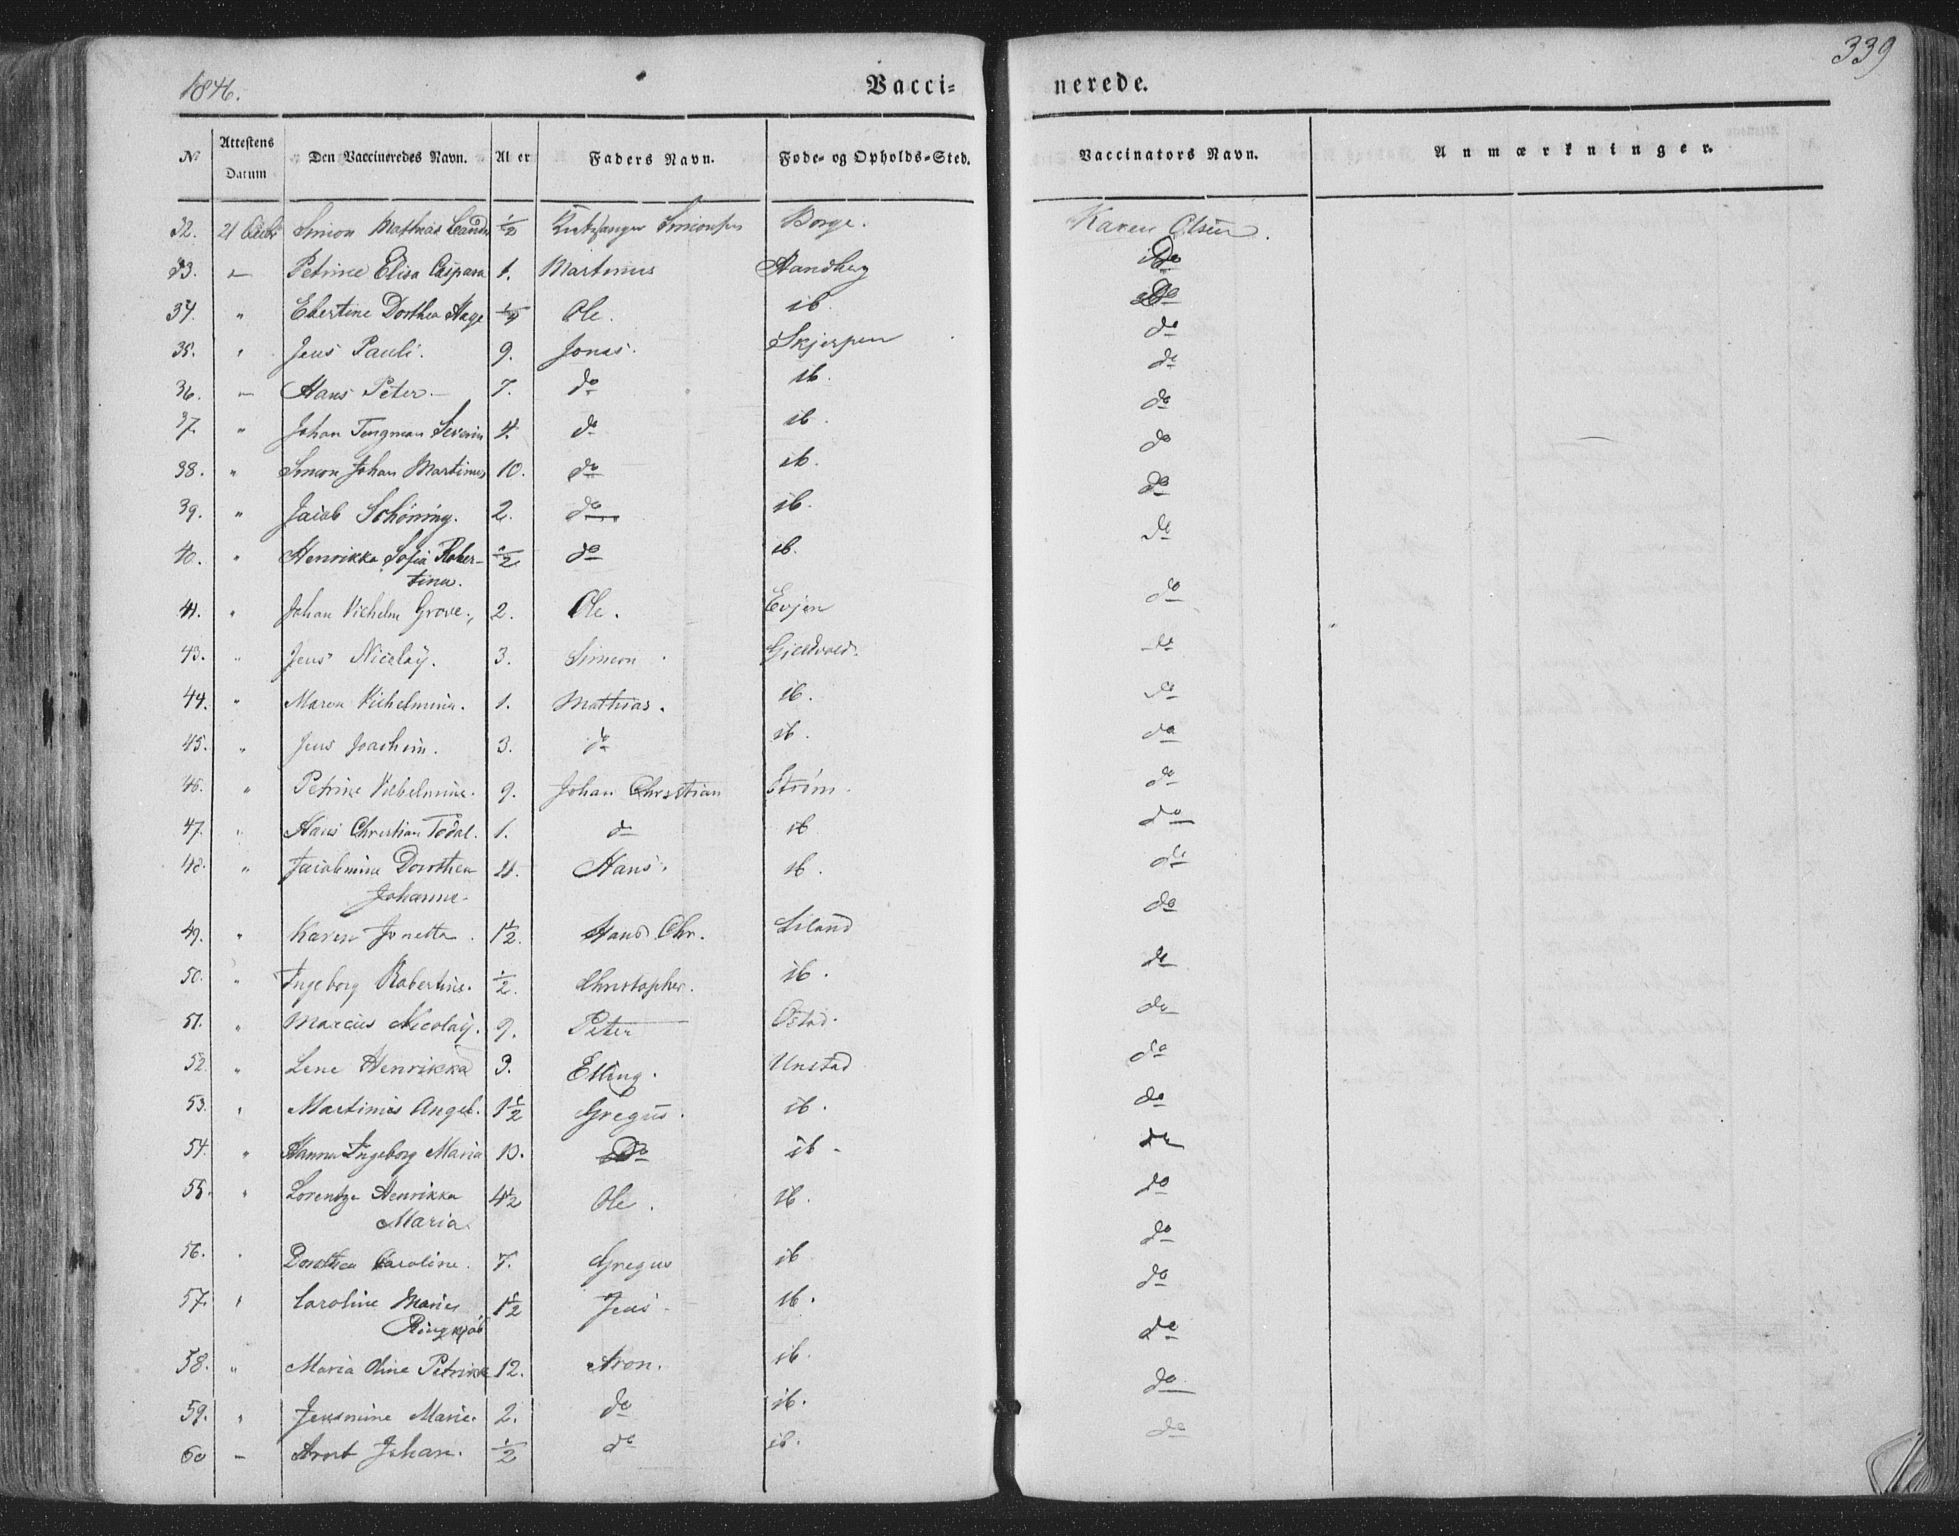 1846.
Vacci-
nerede.
339
No
Attestens Datum
Den Vaccineredes Navn.
Alder
Faders Navn.
Føde- og Opholds-Sted.
Vaccinators Navn.
Anmærkninger.
32. 21 Simon Mathias ½ Simonsen Borge. Karen Olsen.
33. " Petrine Elisa Caspara 1. Martinus Sandberg Do
34. " Ebertine Dorthea Hage Ole. ib. Do
35. " Jens Pauli. 9. Jonas. Skjerpen do
36. " Hans Peter 7. do ib. do
37. " Johan Tengman Severin 4. do ib. do
38. " Simon Johan Martinus 10. do ib. do
39. " Jacob Schöning. 2. do ib. do
40. " Henrikka Sofia Rober-
tina. ½ do ib. do
41. " Johan Vilhelm Grove. 2. Ole. Evjen do
43. " Jens Nicolay. 3. Simeon do
44. " Maren Vilhelmine. 1. Mathias. ib. do
45. " Jens Joachim. 3. do ib. do
46. " Petrine Vilhelmine. 9. Johan Christian Strøm. do
47. " Hans Christian Todal. 1. do ib do
48. " Jacobmine Dorothea
Johanne. 4. Hans. ib. do
49. " Karen Jonetta 1½. Hans Chr. Liland do
50. " Ingeborg Robertine. ½. Christopher. ib. do
51. " Marcus Nicolay. 9. Peter Ostad. do
52. " Lene Henrikka 3. Elling. Unstad do
53. " Martinus Angel. 1½ Gregus. ib. do
54. " Hanna Ingeborg Maria 10. Do ib. do
55. " Lorentze Henrikka
Maria. 4½ Ole. ib. do
56. " Dorothea Caroline. 7. Gregus ib do
57. " Caroline Marie
Ringkjøb 1½ Jens ib. do
58. " Maria Oline Petrikke 12. Aron. ib. do
59. " Jensmine Marie. 2. do ib. do
60 " Arnt Johan. ½ do ib. do